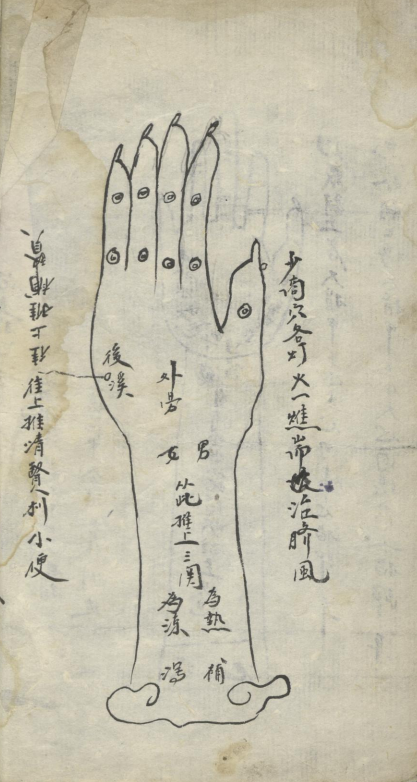 少商穴各灯火一燋崩敗治臍風
外勞
後溪
男
女
從此推上三関
為熱
為涼
補
瀉
往上推清腎利小便